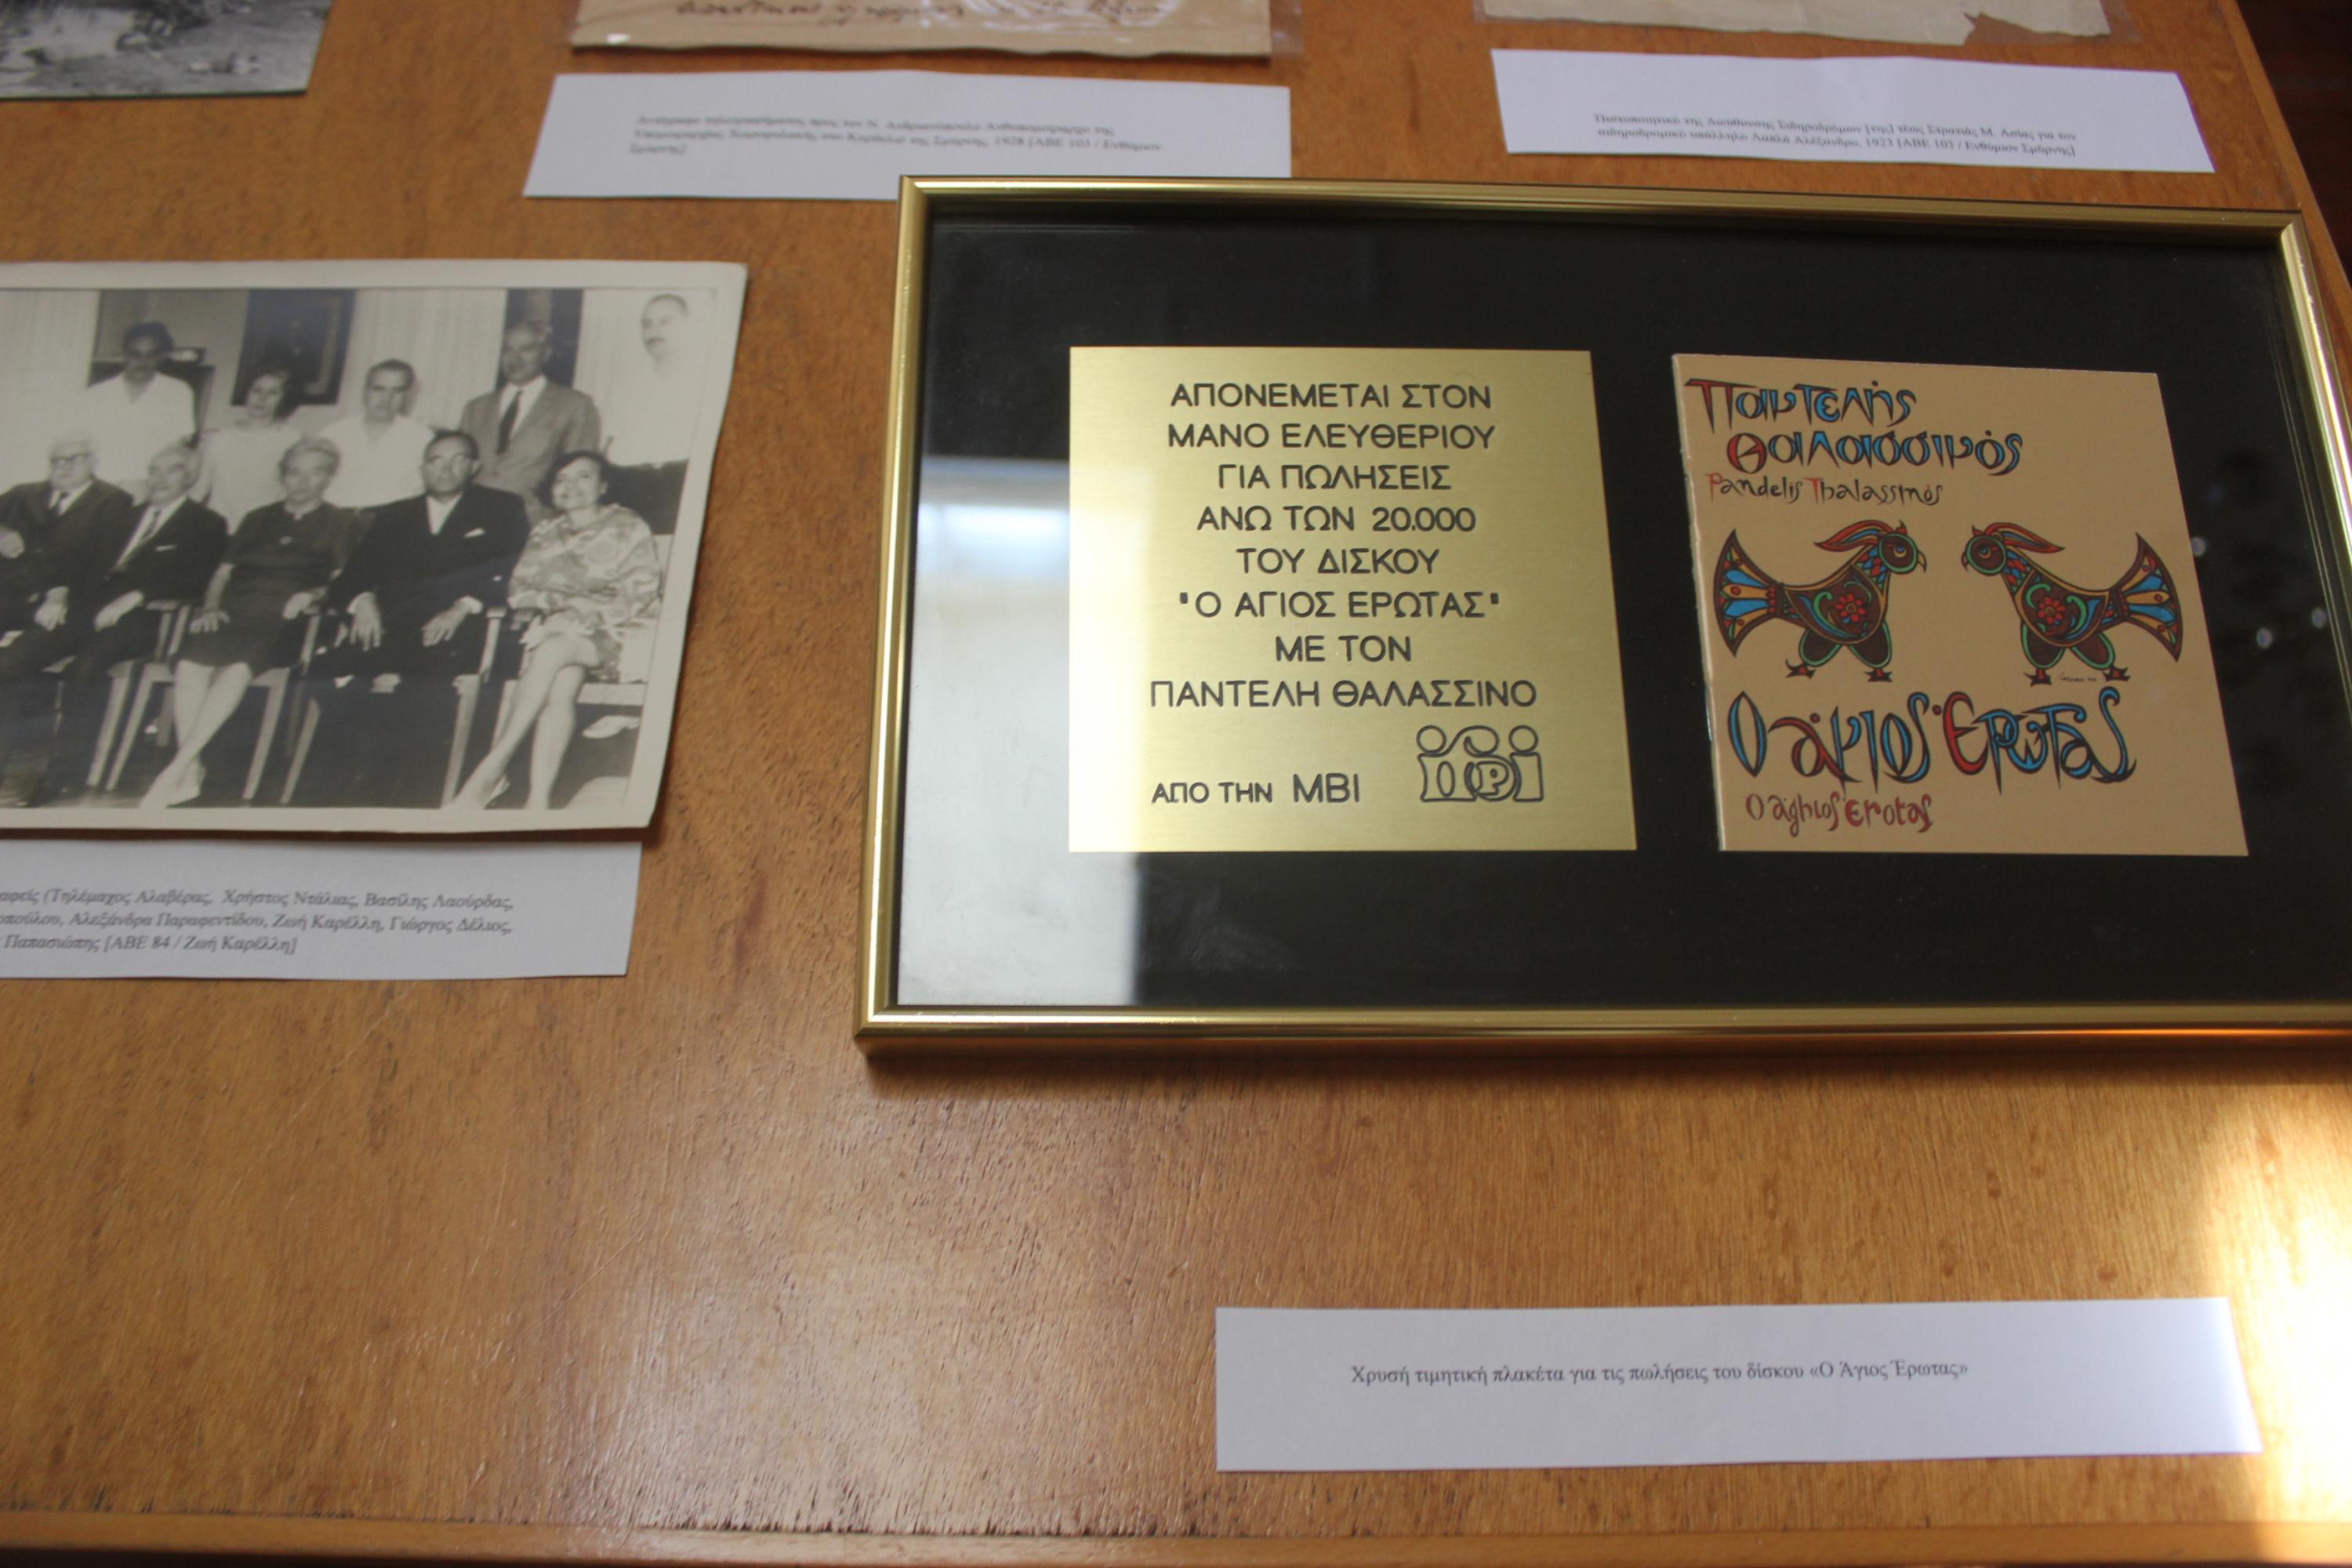 Αντίγραφο τηλεγραφήματος προς τον Ν. Ανδριανόπουλο Ανθυπομοίραρχο της
Υπομοιραρχίας Χωροφυλακής στο Κορδελιό της Σμύρνης, 1928 [ΑΒΕ 103 / Ενθύμιον
Σμύρνης]
Πιστοποιητικό της Διεύθυνσης Σιδηροδρόμων [της] τέως Στρατιάς Μ. Ασίας για τον
σιδηροδρομικό υπάλληλο Αλέξανδρο, 1923 [ΑΒΕ 103 / Ενθύμιον Σμύρνης]
ΑΠΟΝΕΜΕΤΑΙ ΣΤΟΝ
ΜΑΝΟ ΕΛΕΥΘΕΡΙΟΥ
ΓΙΑ ΠΩΛΗΣΕΙΣ
ΑΝΩ ΤΩΝ 20.000
ΤΟΥ ΔΙΣΚΟΥ
"Ο ΑΓΙΟΣ ΕΡΩΤΑΣ"
ΜΕ ΤΟΝ
ΠΑΝΤΕΛΗ ΘΑΛΑΣΣΙΝΟ
ΑΠΟ ΤΗΝ MBI
Παντελής
Θαλασσινός
Pandelis Thalassinós
Ο άγιος Έρωτας
O ághios Érotas
αφείς (Τηλέμαχος Αλαβέρας, Χρήστος Ντάλιας, Βασίλης Λαούρδας,
οπούλου, Αλεξάνδρα Παραφεντίδου, Ζωή Καρέλλη, Γιώργος Δέλιος,
Παπασιώπης [ΑΒΕ 84 / Ζωή Καρέλλη]
Χρυσή τιμητική πλακέτα για τις πωλήσεις του δίσκου «Ο Άγιος Έρωτας»